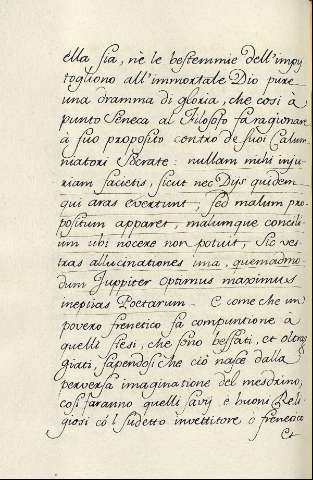 ella sia, nè le bestemmie dell'impÿ
togliono all'immortale Dio pure
una dramma di gloria, che così à
punto Seneca al Filosofo fa ragionare
à suo proposito contro de suoi Calun-
niatori Socrate: nullam mihi inju-
riam facietis, sicut nec Dÿs quidem
qui aras evertunt, sed malum pro-
positum apparet, malumque concili-
um ubi nocere non potuit, sic ves-
tras allucinationes una, quemadmo-
dum Juppiter optimus maximus
ineptias Poetarum. E come che un
povero frenetico fa compuntione à
quelli stesi, che sono beffati, et oltrag-
giati, sapendosi che ciò nasce dalla
perversa imaginatione del meschino,
così faranno quelli savÿ e buoni Reli-
giosi có l sudetto invettitore ò frenetico
Et